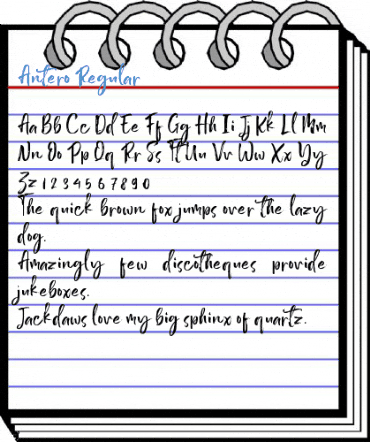 Antero Regular
Aa Bb Cc Dd Ee Ff Gg Hh Ii Jj Kk Ll Mm
Nn Oo Pp Qq Rr Ss Tt Uu Vv Ww Xx Yy
Zz 1 2 3 4 5 6 7 8 9 0
The quick brown fox jumps over the lazy
dog.
Amazingly few discotheques provide
jukeboxes.
Jackdaws love my big sphinx of quartz.